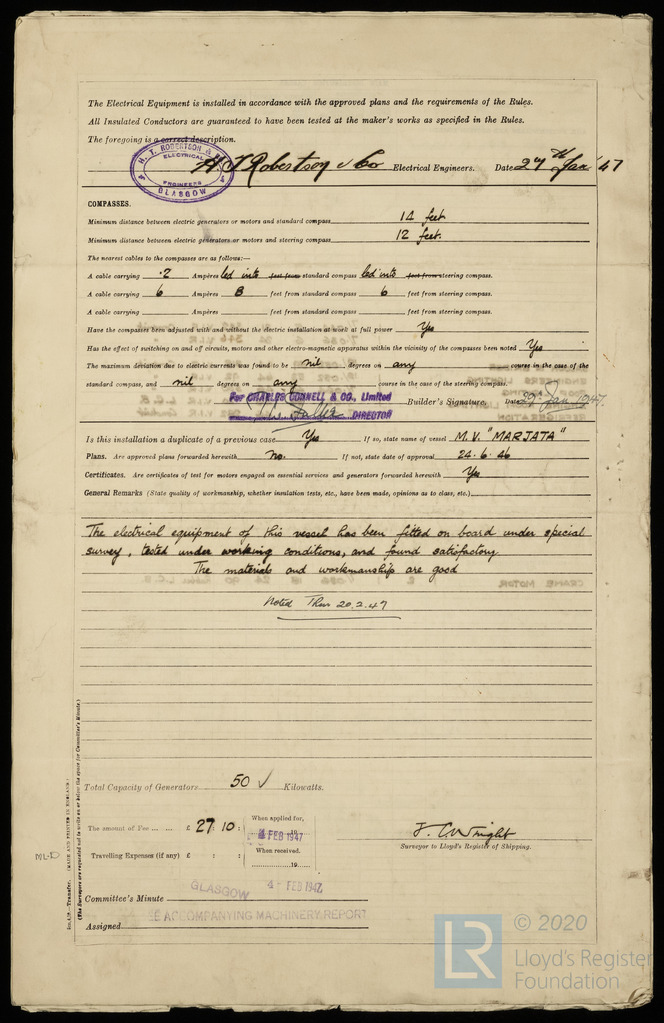 The Electrical Equipment is installed in accordance with the approved plans and the requirements of the Rules.
All Insulated Conductors are guaranteed to have been tested at the maker's works as specified in the Rules.
The foregoing is a correct description.
H. T. ROBERTSON & Co. ELECTRICAL ENGINEERS GLASGOW
H T Robertson & Co Electrical Engineers. Date 27th Jan' 47
COMPASSES.
Minimum distance between electric generators or motors and standard compass 14 feet
Minimum distance between electric generators or motors and steering compass 12 feet.
The nearest cables to the compasses are as follows:—
A cable carrying .2 Ampères led into feet from standard compass led into feet from steering compass.
A cable carrying 6 Ampères 8 feet from standard compass 6 feet from steering compass.
A cable carrying Ampères feet from standard compass feet from steering compass.
Have the compasses been adjusted with and without the electric installation at work at full power Yes
Has the effect of switching on and off circuits, motors and other electro-magnetic apparatus within the vicinity of the compasses been noted Yes
The maximum deviation due to electric currents was found to be nil degrees on any course in the case of the
standard compass, and nil degrees on any course in the case of the steering compass.
For CHARLES CONNELL & CO., Limited
DIRECTOR Builder's Signature. Date 29th Jan 1947
Is this installation a duplicate of a previous case Yes If so, state name of vessel M.V. "MARJATA"
Plans. Are approved plans forwarded herewith no. If not, state date of approval 24.6.46
Certificates. Are certificates of test for motors engaged on essential services and generators forwarded herewith Yes
General Remarks (State quality of workmanship, whether insulation tests, etc., have been made, opinions as to class, etc.)
The electrical equipment of this vessel has been fitted on board under special
survey, tested under working conditions, and found satisfactory.
The materials and workmanship are good
Noted 20.2.47
Total Capacity of Generators 50 √ Kilowatts.
The amount of Fee ... ... £ 27 : 10 : When applied for,
4 FEB 1947
Travelling Expenses (if any) £ : : When received.
19
J. C. Wright
Surveyor to Lloyd's Register of Shipping.
Committee's Minute GLASGOW 4 - FEB 1947
Assigned SEE ACCOMPANYING MACHINERY REPORT
Transfer. (MADE AND PRINTED IN ENGLAND.)
(The Surveyors are requested not to write on or below the space for Committee's Minute.)
LR © 2020
Lloyd's Register
Foundation